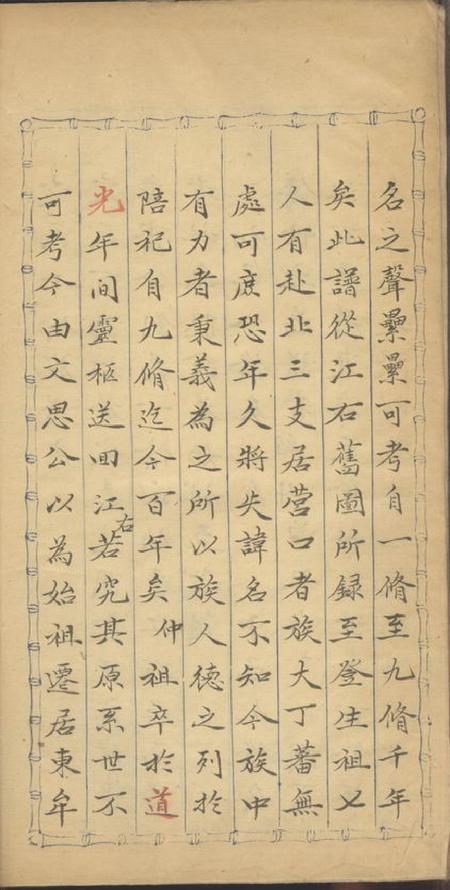 名之聲纍纍可考自一脩至九脩千年
矣此譜從江右舊圖所録至登生祖乂
人有赴北三支居营口者族大丁蕃無
處可庻恐年久將失諱名不知今族中
有力者秉義為之所以族人德之列於
陪祀自九脩迄今百年矣仲祖卒於道
光年间靈柩送回江右若究其原系世不
可考今由文思公以為始祖遷居東牟